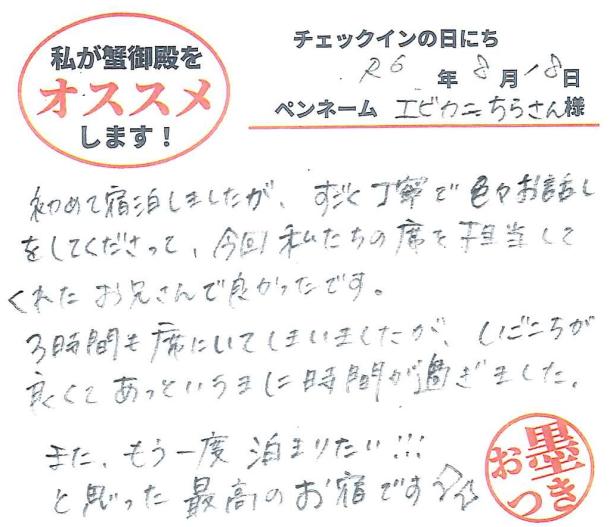 私が蟹御殿を
オススメ
します！
チェックインの日にち
R6年8月18日
ペンネーム エビカニちらさん様
初めて宿泊しましたが、すごく丁寧で色々お話し
をしてくださって、今回私たちの席を担当して
くれたお兄さんで良かったです。
3時間も席にいてしまいましたが、いごこちが
良くてあっというまに時間が過ぎました。
また、もう一度泊まりたい!!!
と思った最高のお宿です☆☆
お墨つき